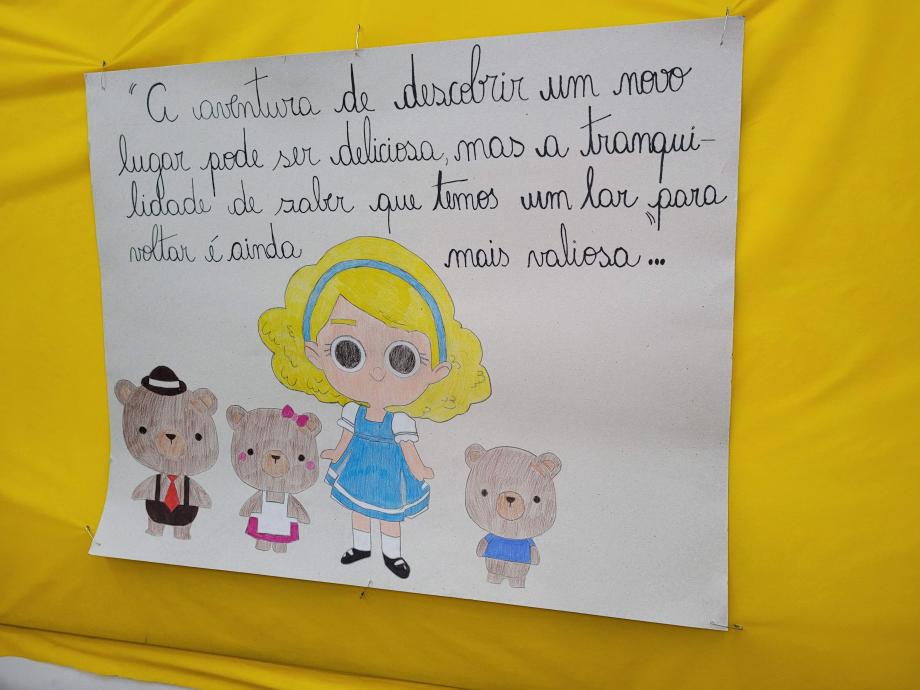 "A aventura de descobrir um novo
lugar pode ser deliciosa, mas a tranqui-
lidade de saber que temos um lar para
voltar é ainda mais valiosa"...